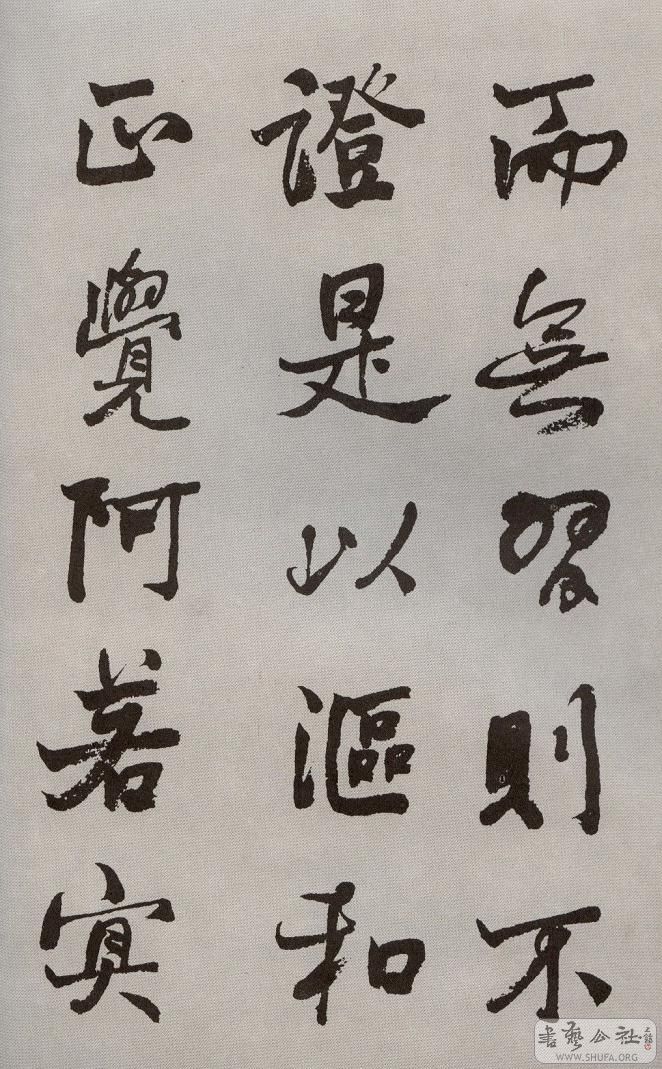 而無習則不
證是以漚和
正覺阿若寘
書藝公社
WWW.SHUFA.ORG